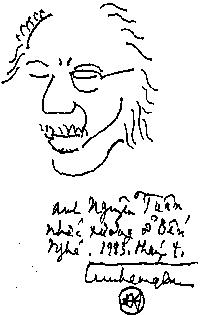 anh Nguyễn Tuân
nhắc xuống ở Bến
Nghé. 1983. tháng 4.